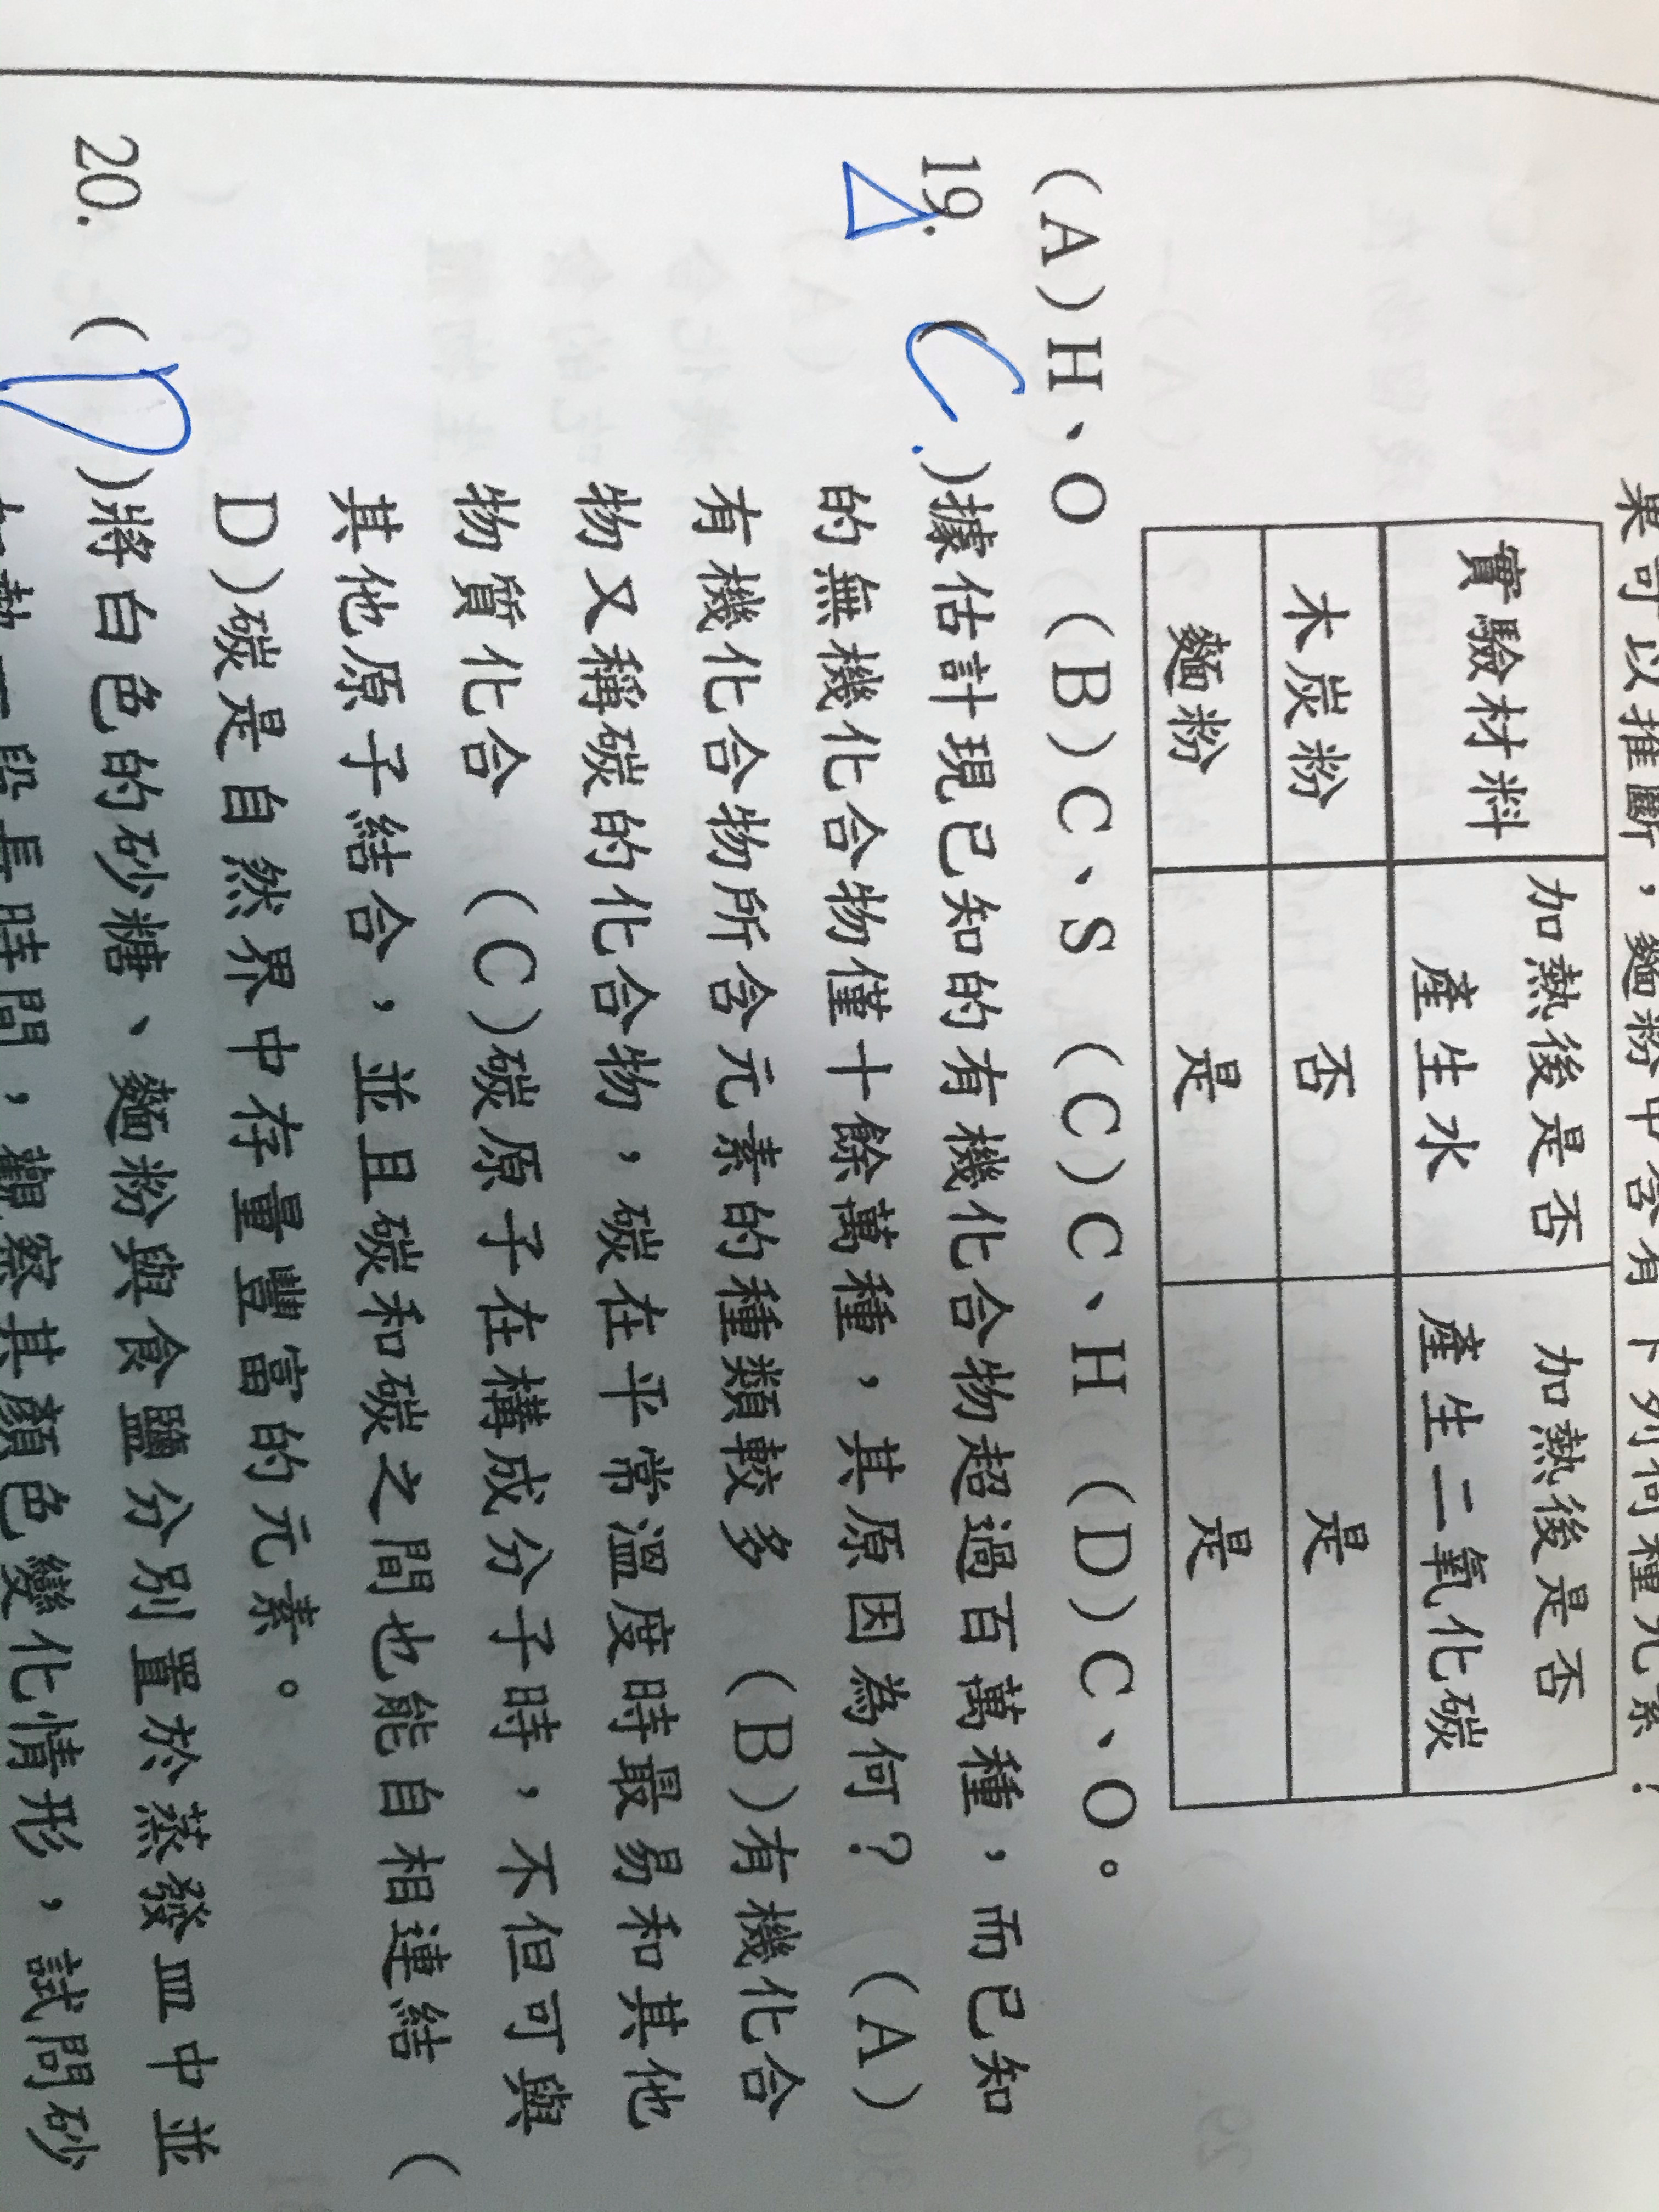 果可以推斷，麵粉中含有下列何種元素？
實驗材料 加熱後是否產生水 加熱後是否產生二氧化碳
木炭粉 否 是
麵粉 是 是
(A)H、O (B)C、S (C)C、H (D)C、O。
19. (C)據估計現已知的有機化合物超過百萬種，而已知
的無機化合物僅十餘萬種，其原因為何？ (A)
有機化合物所含元素的種類較多 (B)有機化合
物又稱碳的化合物，碳在平常溫度時最易和其他
物質化合 (C)碳原子在構成分子時，不但可與
其他原子結合，並且碳和碳之間也能自相連結 (
D)碳是自然界中存量豐富的元素。
20. (D)將白色的砂糖、麵粉與食鹽分別置於蒸發皿中並
加熱一段長時間，觀察其顏色變化情形，試問砂